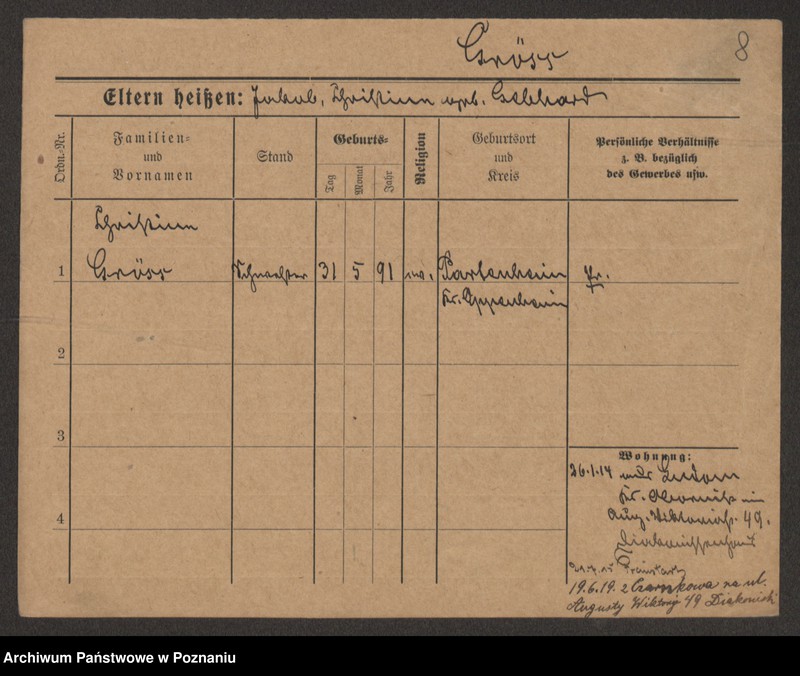 Gröss
8
Eltern heißen: Jakob, Christine geb. Gebhard
Ordn.-Nr.
Familien-
und
Vornamen
Stand
Geburts-
Tag
Monat
Jahr
Religion
Geburtsort
und
Kreis
Persönliche Verhältnisse
z. B. bezüglich
des Gewerbes usw.
Christine
1 Gröss Schwester 31 5 91 ev. Partenheim Pr.
Kr. Oppenheim
2
3
4
Wohnung:
26.1.14 aus Ludom
Kr. Obornik in
Aug. Viktoriast. 49.
Diakonissenhaus
19.6.19. z Czarnkowa na ul.
Augusty Wiktorji 49 Diakoniski
Archiwum Państwowe w Poznaniu